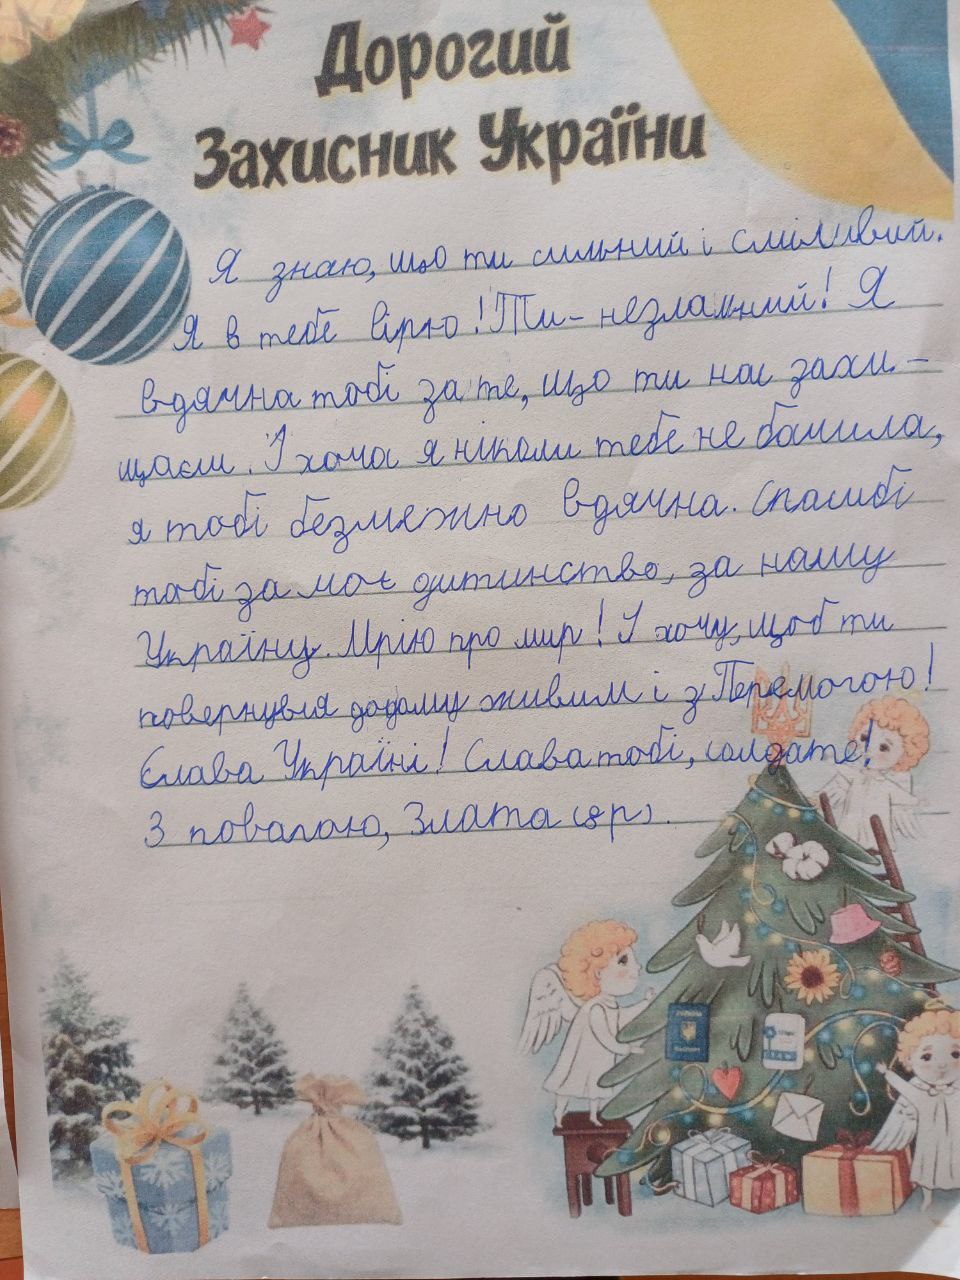 Дорогий
Захисник України
Я знаю, що ти сильний і сміливий.
Я в тебе вірю! Ти - незламний! Я
вдячна тобі за те, що ти нас захи-
щаєш. І хоча я ніколи тебе не бачила,
я тобі безмежно вдячна. Спасибі
тобі за моє дитинство, за нашу
Україну. Мрію про мир! І хочу, щоб ти
повернувся додому живим і з Перемогою!
Слава Україні! Слава тобі, солдате!
З повагою, Злата (8 р).